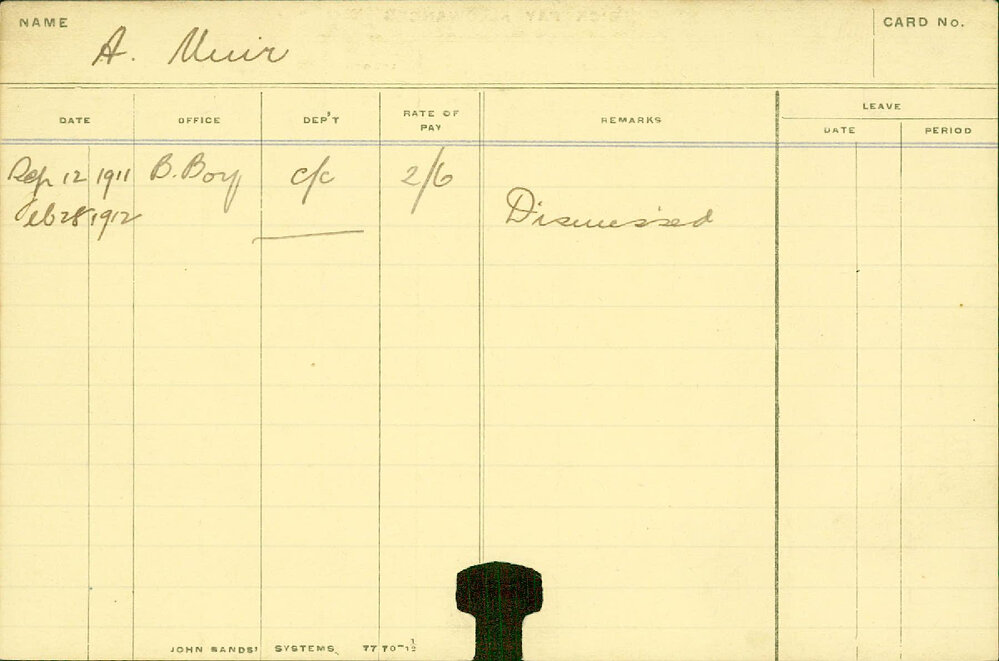 NAME
CARD No.
A. Muir
LEAVE
DATE OFFICE DEP'T RATE OF PAY REMARKS DATE PERIOD
Sep 12 1911 B. Boy c/c 2/6
Feb 28 1912 Dismissed
JOHN SANDS' SYSTEMS